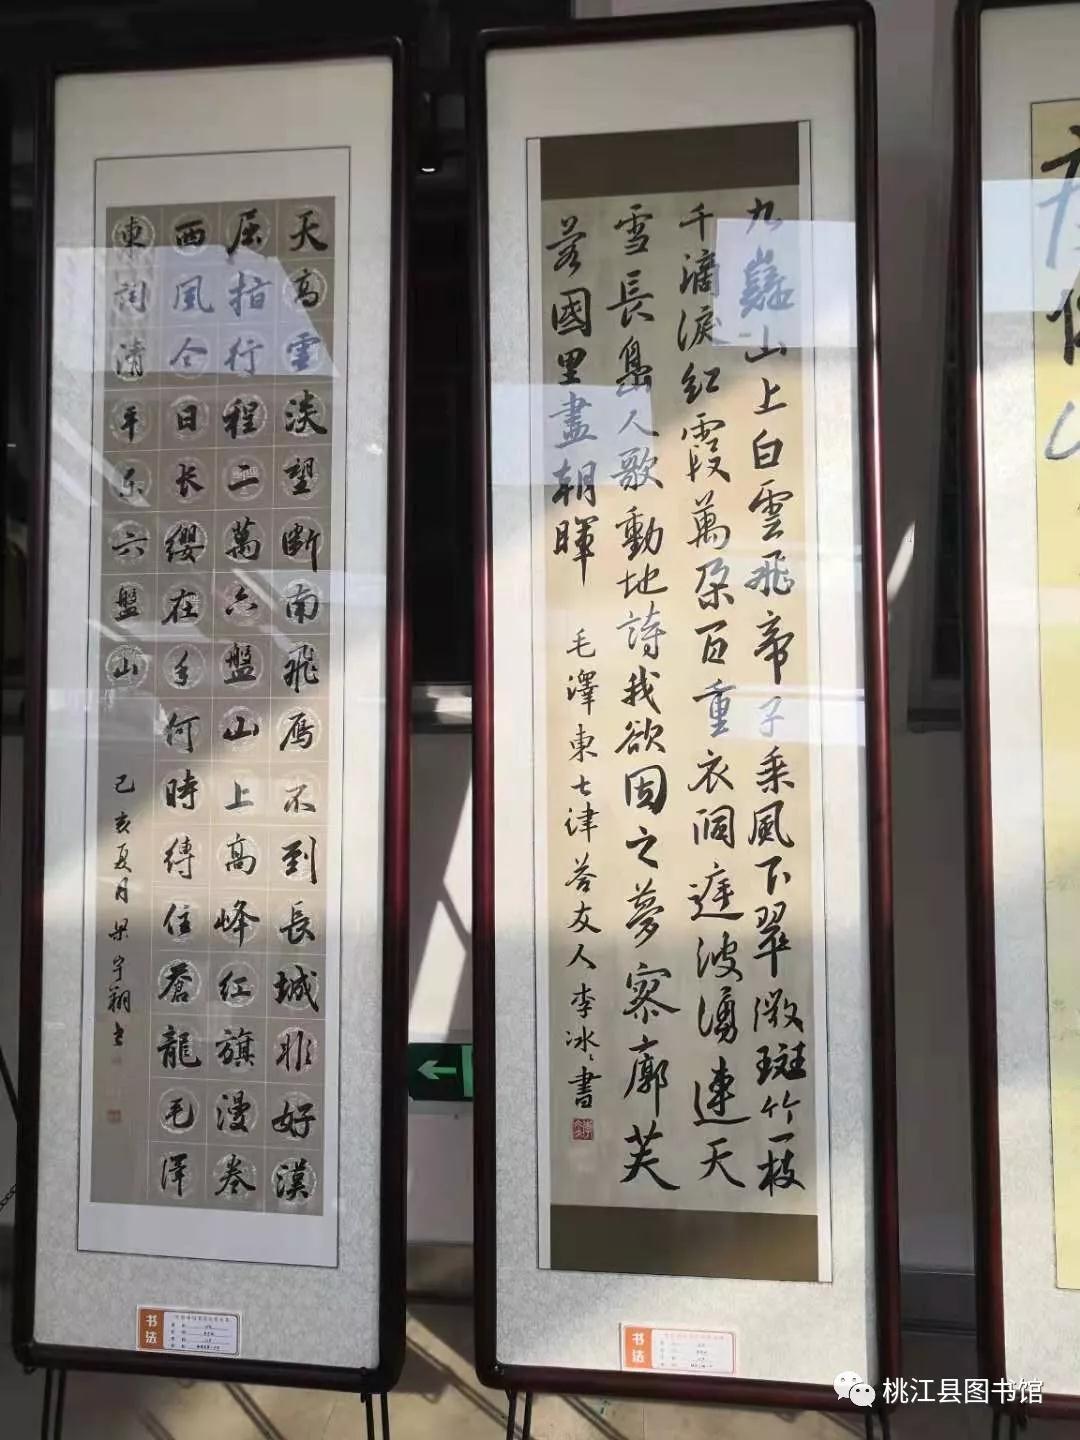 天高雲淡望斷南飛雁不到長城非好漢
屈指行程二萬六盤山上高峰红旗漫卷
西風今日长缨在手何時縛住蒼龍毛澤
東詞清平乐六盤山
己亥夏月梁宇翔书
书法
九嶷山上白雲飛帝子乘風下翠微斑竹一枝
千滴淚红霞萬朵百重衣洞庭波湧連天
雪長島人歌動地詩我欲因之夢寥廓芙
蓉國里盡朝暉
毛澤東七律答友人李冰冰書
书法
桃江县图书馆